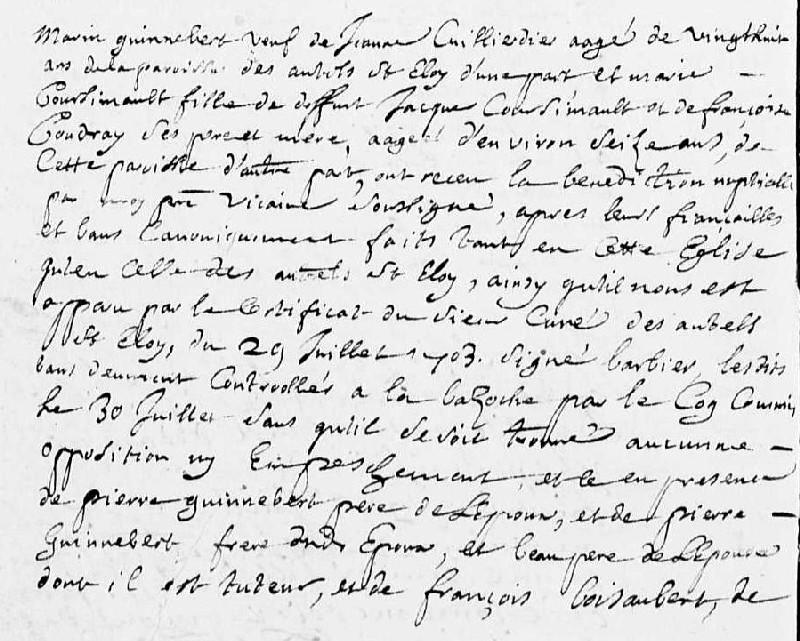 Marin guinnebert veuf de Jeanne Cuillerdier aagé de vingthuit
ans de la paroisse des autels St Eloy d'une part et marie —
Coursimault fille de deffunt Jacque Coursimault et de françoise
Coudray ses pere et mere, aageé d'environ seize ans, de
Cette paroisse d'autre part, ont receu la benediction nuptialle
par moy prtre Vicaire soussigné, apres leurs fiançailles
et bans Canoniquement faits tant en Cette Eglise
qu'en Celle des autels St Eloy, ainsy qu'il nous est
apparu par le Certificat du sieur Curé des autels
St Eloy, du 29 Juillet 1703. signé barbier, lesdits
bans deument Controollés a la bazoche par le Coq Commis
le 30 Juillet sans qu'il se soit trouvé aucunne —
opposition ny Empeschement, et ce en presence
de pierre guinnebert pere de L'Epoux, et de pierre —
Guinnebert frere dudt Epoux, et beaupere de L'Epouse
dont il est tuteur, et de françois boisaubert, de